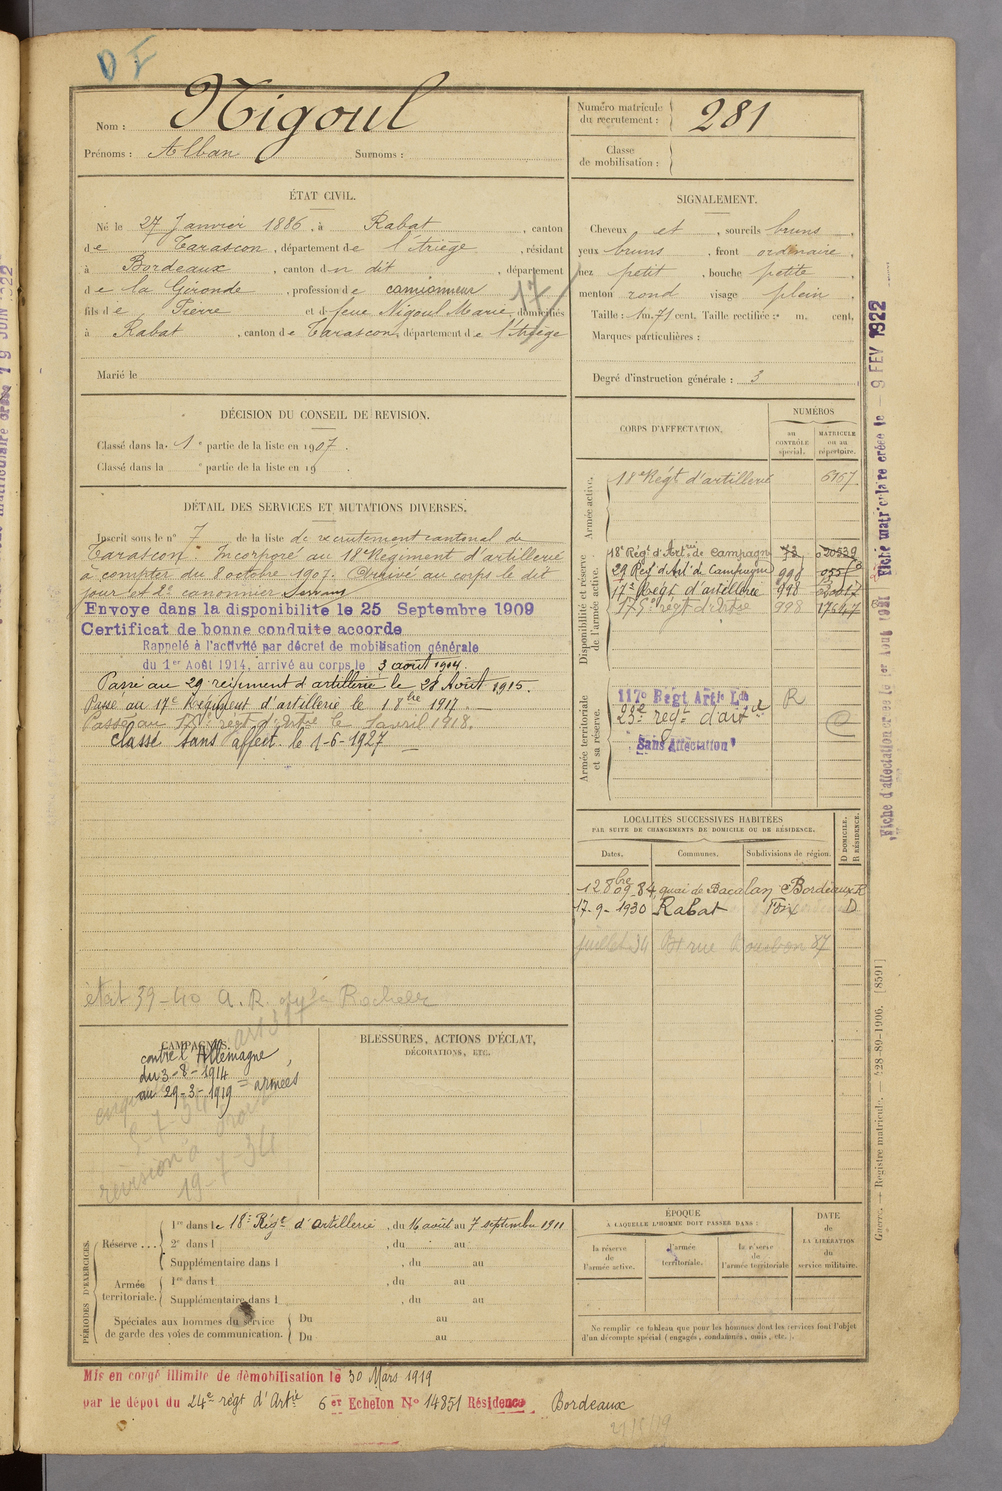 DF
Nom : Nigoul
Prénoms : Alban Surnoms :
Numéro matricule
du recrutement : 281
Classe
de mobilisation :
ÉTAT CIVIL.
Né le 27 Janvier 1886, à Rabat, canton
de Tarascon, département de l'Ariège, résidant
à Bordeaux, canton du dit, département
de la Gironde, profession de camionneur
fils de Pierre et d feue Nigoul Marie, domiciliés
à Rabat, canton de Tarascon, département de l'Ariège
17
Marié le
SIGNALEMENT.
Cheveux et, sourcils bruns,
yeux bruns, front ordinaire,
nez petit, bouche petite,
menton rond visage plein.
Taille : 1m. 71 cent, Taille rectifiée : m. cent,
Marques particulières :
Degré d'instruction générale : 3
DÉCISION DU CONSEIL DE REVISION.
Classé dans la 1e partie de la liste en 1907.
Classé dans la e partie de la liste en 19 .
DÉTAIL DES SERVICES ET MUTATIONS DIVERSES.
Inscrit sous le n° 7 de la liste de recrutement cantonal de
Tarascon. Incorporé au 18e Régiment d'artillerie
à compter du 8 octobre 1907. Arrivé au corps le dit
jour et 2e canonnier servant
Envoye dans la disponibilite le 25 Septembre 1909
Certificat de bonne conduite accorde
Rappelé à l'activité par décret de mobilisation générale
du 1er Août 1914, arrivé au corps le 3 août 1914.
Passé au 29 régiment d'artillerie le 28 Août 1915.
Passé au 17e Régiment d'artillerie le 1 8bre 1917.
Passé au 175e régt d'Artie le 1 avril 1918.
Classé sans affect. le 1-6-1927
état 39-40 A.R.
CORPS D'AFFECTATION.
NUMÉROS
au
CONTRÔLE
spécial.
MATRICULE
ou au
répertoire.
Armée active.
18e Régt d'artillerie 6157
Disponibilité et réserve
de l'armée active.
18e Régt d'Artrie de Campagne
29 Regt d'Art de Campagne 998
17e Régt d'artillerie 998
175e régt d'Artie 998 17647
Armée territoriale
et sa réserve.
117e Regt Artie Lde R
23e régt d'artie
Sans Affectation
LOCALITÉS SUCCESSIVES HABITÉES
PAR SUITE DE CHANGEMENTS DE DOMICILE OU DE RÉSIDENCE.
Dates. Communes. Subdivisions de région. D DOMICILE. R RÉSIDENCE.
12 8bre 09 84, quai de Bacalan Bordeaux R
17-9-1930 Rabat Foix D
juillet 34 rue 87
CAMPAGNES.
contre l'Allemagne
du 3-8-1914
au 29-3-1919 = armées
révision
19-7-34
BLESSURES, ACTIONS D'ÉCLAT,
DÉCORATIONS, ETC.
PÉRIODES D'EXERCICES.
Réserve ... 1re dans le 18e Régt d'Artillerie, du 16 août au 7 septembre 1911
2e dans l , du au
Supplémentaire dans l , du au
Armée
territoriale. 1re dans l , du au
Supplémentaire dans l , du au
Spéciales aux hommes du service
de garde des voies de communication. Du au
Du au
ÉPOQUE
A LAQUELLE L'HOMME DOIT PASSER DANS :
la réserve
de
l'armée active.
l'armée
territoriale.
la réserve
de
l'armée territoriale
DATE
de
LA LIBÉRATION
du
service militaire.
Ne remplir ce tableau que pour les hommes dont les services font l'objet
d'un décompte spécial (engagés, condamnés, omis, etc.).
Mis en congé illimité de démobilisation le 30 Mars 1919
par le dépot du 24e régt d'Artie 6er Echelon N° 14851 Résidence Bordeaux
Fiche matriculaire créée le 9 FEV 1922
Fiche d'affectation créée le 1er Août 1921
Guerre. — Registre matricule. — 428-89-1906. [8591]
19 JUIN 1922